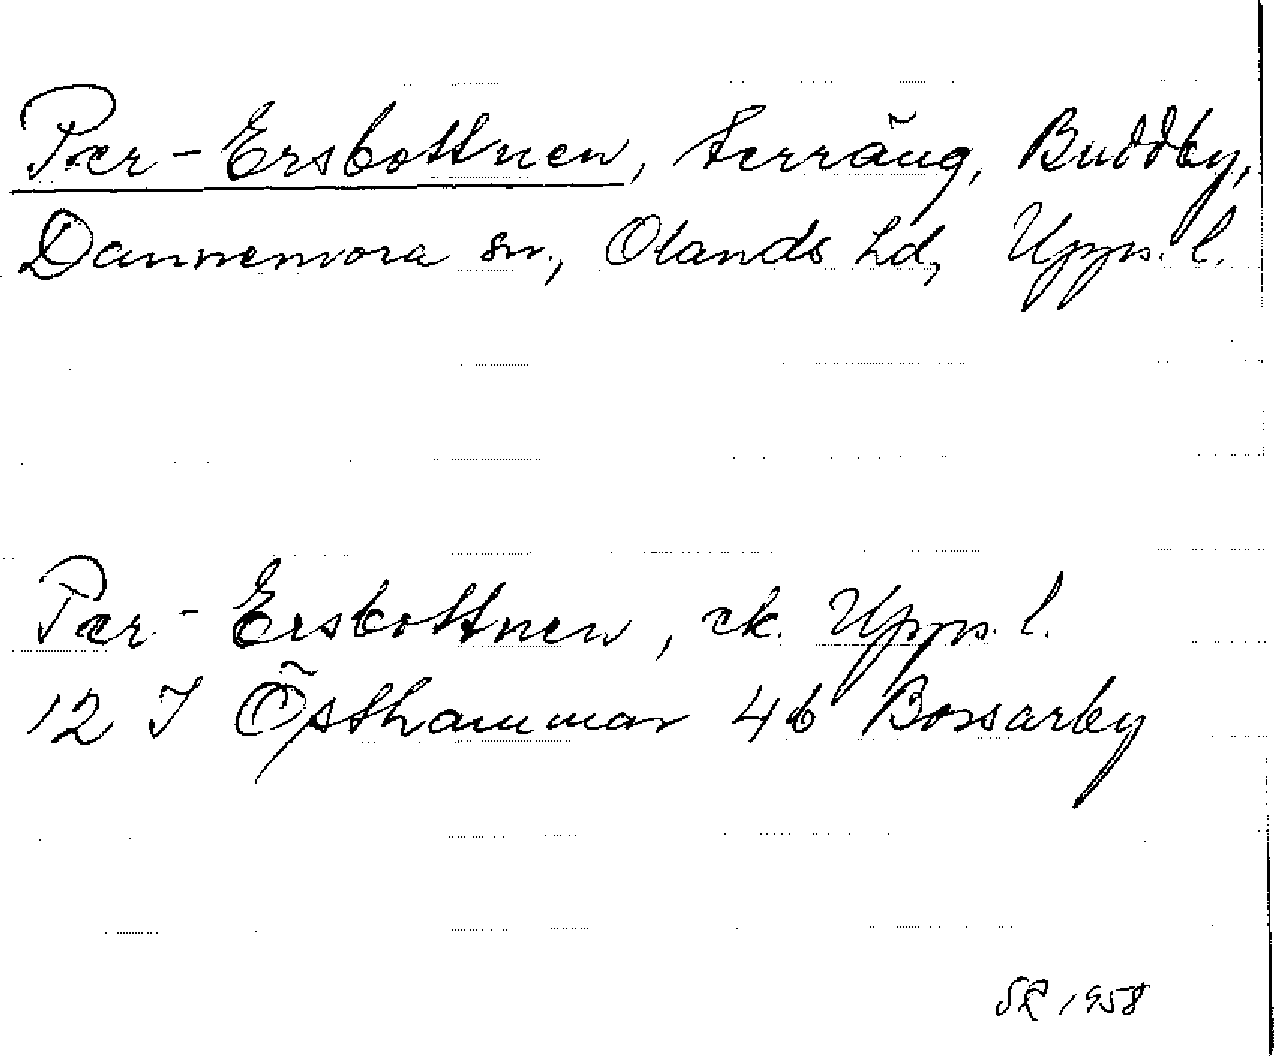 Per-Ersbottnen, terräng, Buddby,
Dannemora sn., Olands hd, Upps. l.
Per-Ersbottnen, ek. Upps. l.
12 I Östhammar 4b Bossarby
SR 1958